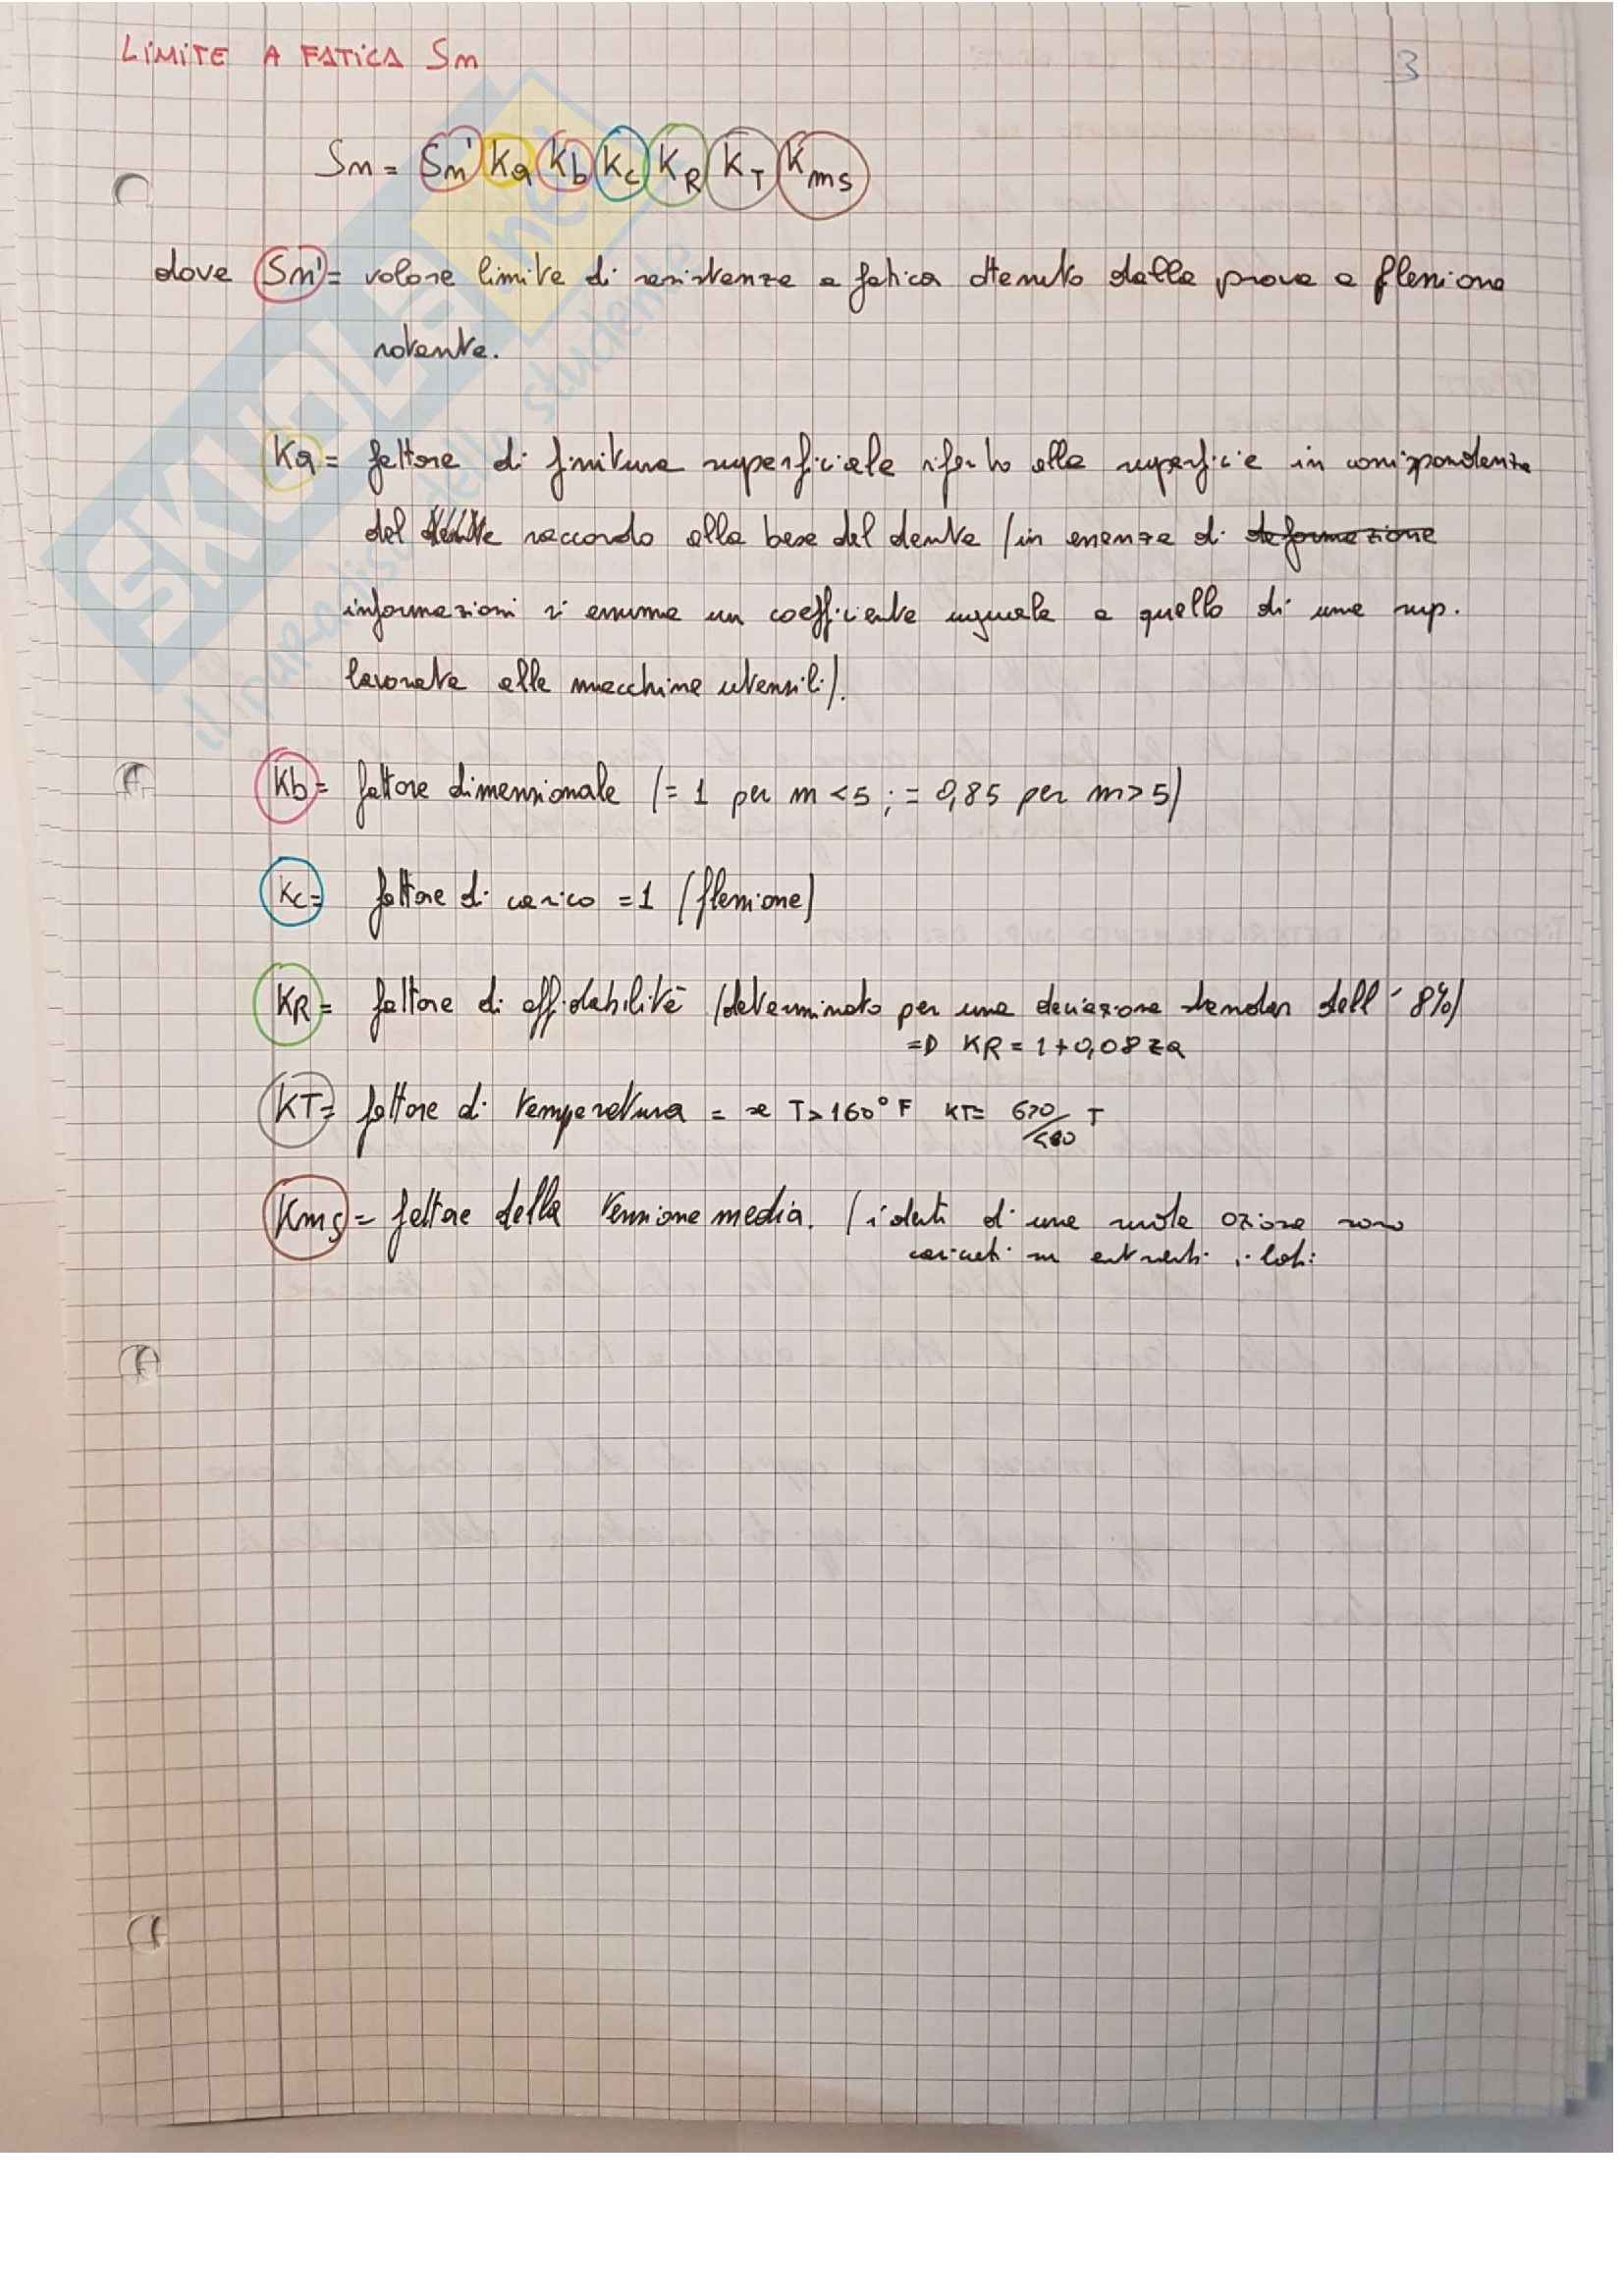 LIMITE A FATICA Sn
3
Sn = Sn' Ka Kb Kc KR KT Kms
dove Sn' = valore limite di resistenza a fatica ottenuto dalla prova a flessione
rotante.
Ka = fattore di finitura superficiale riferito alla superficie in corrispondenza
del raccordo alla base del dente (in assenza di deformazione
informazioni si assume un coefficiente uguale a quello di una sup.
lavorata alle macchine utensili).
Kb = fattore dimensionale (= 1 per m < 5 ; = 0,85 per m > 5)
Kc = fattore di carico = 1 (flessione)
KR = fattore di affidabilità (determinato per una deviazione standar dell' 8%)
=D KR = 1 + 0,08 za
KT = fattore di temperatura = se T > 160° F KT = 620/ T
Kms = fattore della tensione media. (i denti di una ruota oziosa sono
caricati su entrambi i lati
SKUOLA.net
il paradiso dello studente